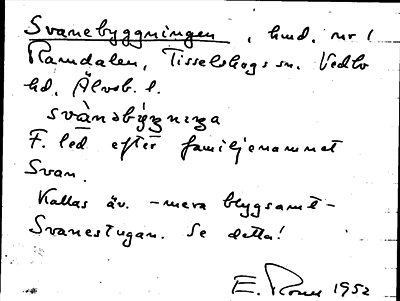 Svanebyggningen, hmd. nr 1
Ramdalen, Tisselskogs sn. Vedbo
hd. Älvsb. l.
svànəbýgniŋa
F. led efter familjenamnet
Svan.
Kallas äv. – mera blygsamt –
Svanestugan. Se detta!
E. 1952